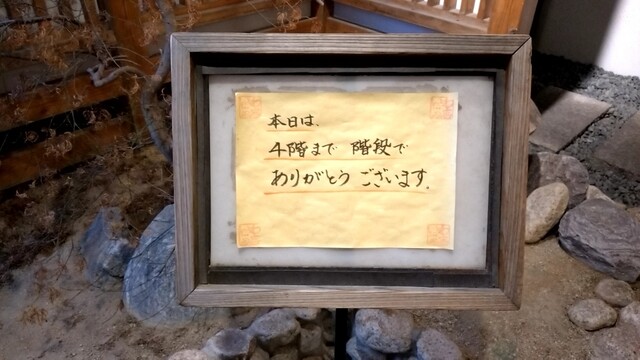 本日は、
4階まで 階段で
ありがとう ございます。